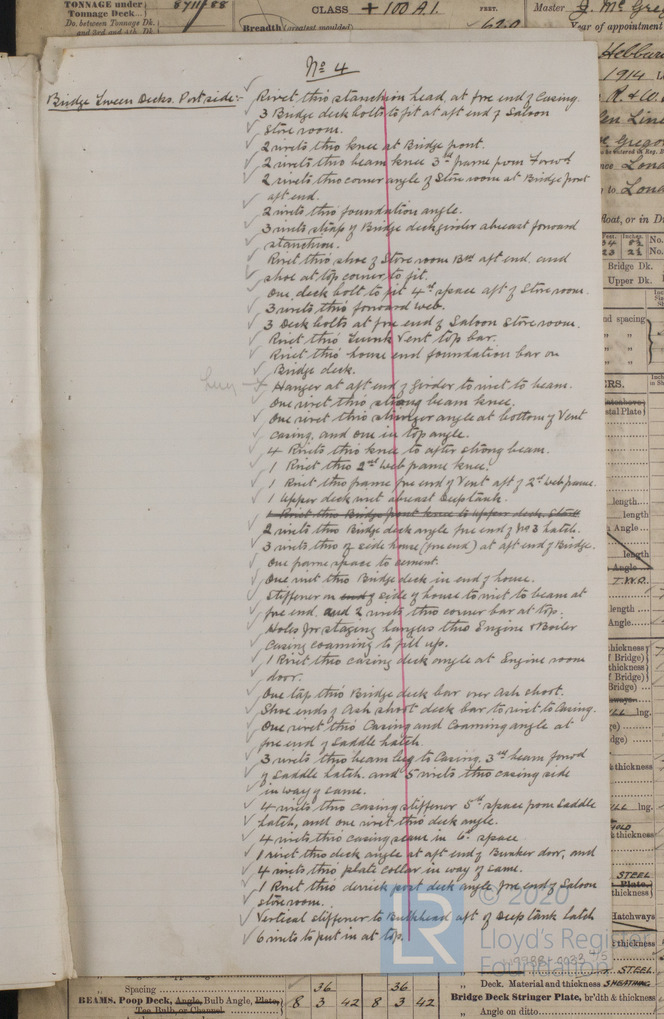 TONNAGE under
Tonnage Deck...
Do. between Tonnage Dk.
and 3rd and 4th Dk.
8711/88
CLASS + 100 A.I.
FEET.
Breadth (greatest moulded)
62.0
Master J. Mc Gre
Year of appointment
Hebbur
1914
R. & W.
en Line
Gregor
Lond
to Lond
float, or in D
No 4
Bridge Tween Decks. Port side:-
Rivet thro stanchion head, at fore end of Casing.
3 Bridge deck bolts to fit at aft end of Saloon
Store room.
2 rivets thro knee at Bridge front.
2 rivets thro beam knee 3rd frame from Forwd
2 rivets thro corner angle of Store room at Bridge front
aft end.
2 rivets thro foundation angle.
3 rivets strap of Bridge deck girder abreast forward
stanchion.
Rivet thro shoe of Store room Bhd aft end. and
shoe at top corner to fit.
One deck bolt to fit 4th space aft of Store room.
3 rivets thro forward web.
3 Deck bolts at fore end of Saloon Store room.
Rivet thro Trunk Vent top bar.
Rivet thro house end foundation bar on
Bridge deck.
Hanger at aft end of Girder to rivet to beam.
One rivet thro strong beam knee.
One rivet thro stringer angle at bottom of Vent
casing. and one in top angle.
4 Rivets thro knee to after strong beam.
1 Rivet thro 2nd web frame knee.
1 Rivet thro frame fore end of Vent aft of 2nd web frame.
1 Upper deck rivet abreast Deep tank.
1 Rivet thro Bridge front knee to upper deck. Stbd
2 rivets thro Bridge deck angle fore end of No 3 hatch.
3 rivets thro of side house (fore end) at aft end of Bridge.
One frame space to cement.
One rivet thro Bridge deck in end of house.
Stiffener on end of side of house to rivet to beam at
fore end. and 2 rivets thro corner bar at top.
Holes for staging hangers thro Engine & Boiler
Casing coaming to fill up.
1 Rivet thro casing deck angle at Engine room
door.
One tap thro Bridge deck bar over Ash shoot.
Shoe ends of Ash shoot deck bar to rivet to Casing.
One rivet thro Casing and Coaming angle at
fore end of Saddle hatch.
3 rivets thro beam lug to Casing, 3rd beam forwd
of Saddle hatch. and 5 rivets thro casing side
in way of same.
4 rivets thro casing stiffener 5th space from Saddle
hatch, and one rivet thro deck angle.
4 rivets thro casing seam in 6th space
1 rivet thro deck angle at aft end of Bunker door, and
4 rivets thro plate collar in way of same.
1 Rivet thro derrick post deck angle fore end of Saloon
store room.
Vertical stiffener to Bulkhead aft of Deep tank hatch
6 rivets to put in at top.
© 2020
LR
Lloyd's Register
Foundation
Bridge Dk.
Upper Dk.
nd spacing
ERS.
stal Plate)
length
length
Angle
length
Angle
T.W.D.
length
Angle
thickness
f Bridge)
thickness
f Bridge)
Bridge)
lng.
thickness
lng.
thickness
STEEL
Plate,
thickness
Hatchways
thickness
STEEL
Deck. Material and thickness SHEATHING
Spacing 36 36
BEAMS. Poop Deck, Angle, Bulb Angle, Plate, 8 3 42 8 3 42
Tee Bulb, or Channel
Bridge Deck Stringer Plate, br'dth & thickness
„ Angle on ditto